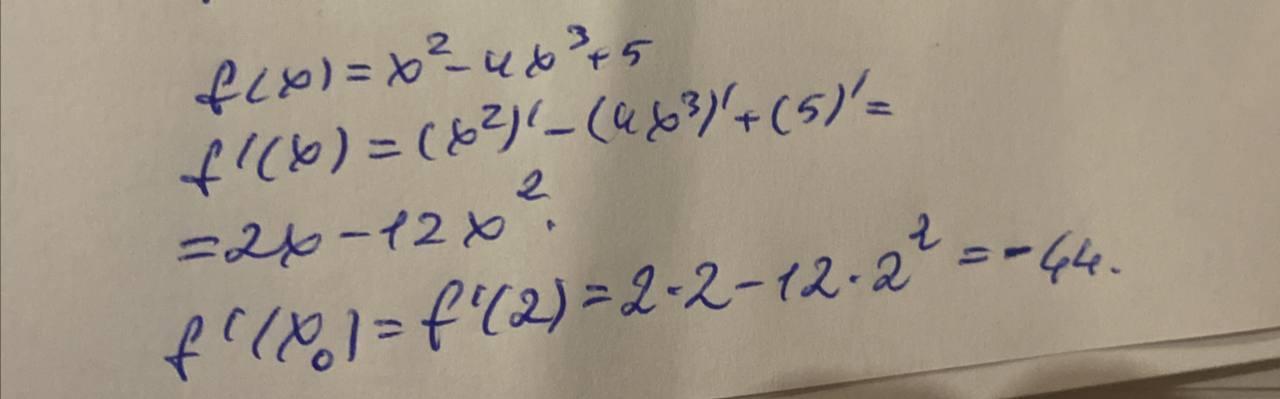 f(x) = x² - 4x³ + 5
f'(x) = (x²)' - (4x³)' + (5)' =
= 2x - 12x².
f'(x₀) = f'(2) = 2·2 - 12·2² = -44.